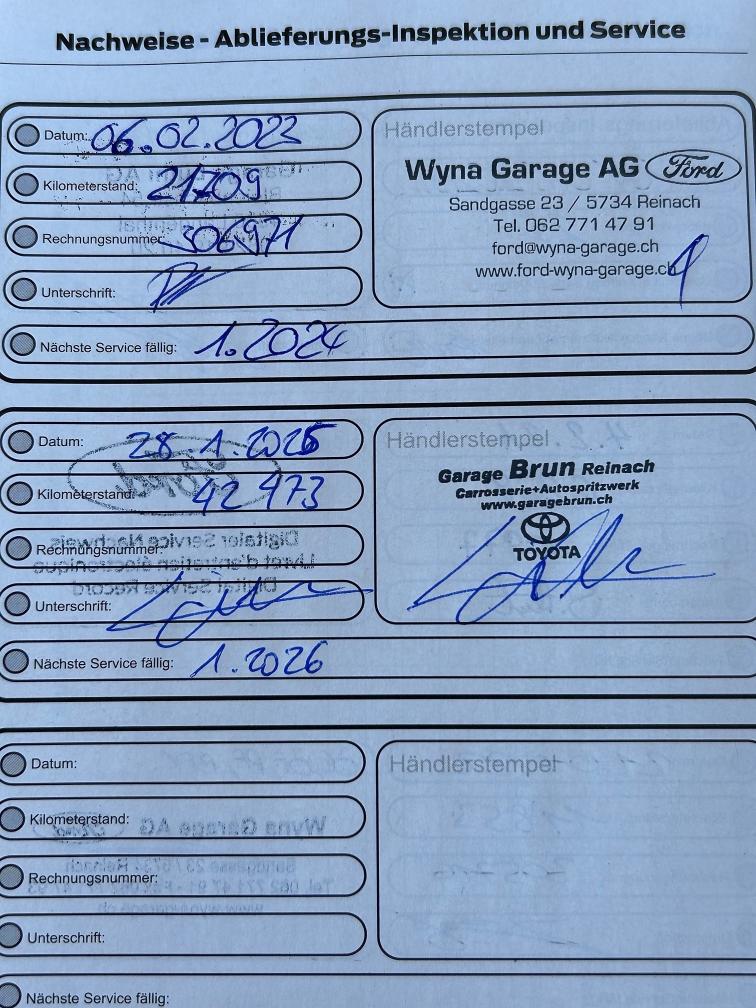 Nachweise - Ablieferungs-Inspektion und Service
Datum: 06.02.2023
Kilometerstand: 21709
Rechnungsnummer: 306971
Unterschrift:
Nächste Service fällig: 1.2024
Händlerstempel
Wyna Garage AG Ford
Sandgasse 23 / 5734 Reinach
Tel. 062 771 47 91
ford@wyna-garage.ch
www.ford-wyna-garage.ch
Datum: 28 1.2025
Kilometerstand: 42 973
Rechnungsnummer:
Unterschrift:
Nächste Service fällig: 1.2026
Händlerstempel
Garage Brun Reinach
Carrosserie+Autospritzwerk
www.garagebrun.ch
TOYOTA
Datum:
Kilometerstand:
Rechnungsnummer:
Unterschrift:
Nächste Service fällig:
Händlerstempel